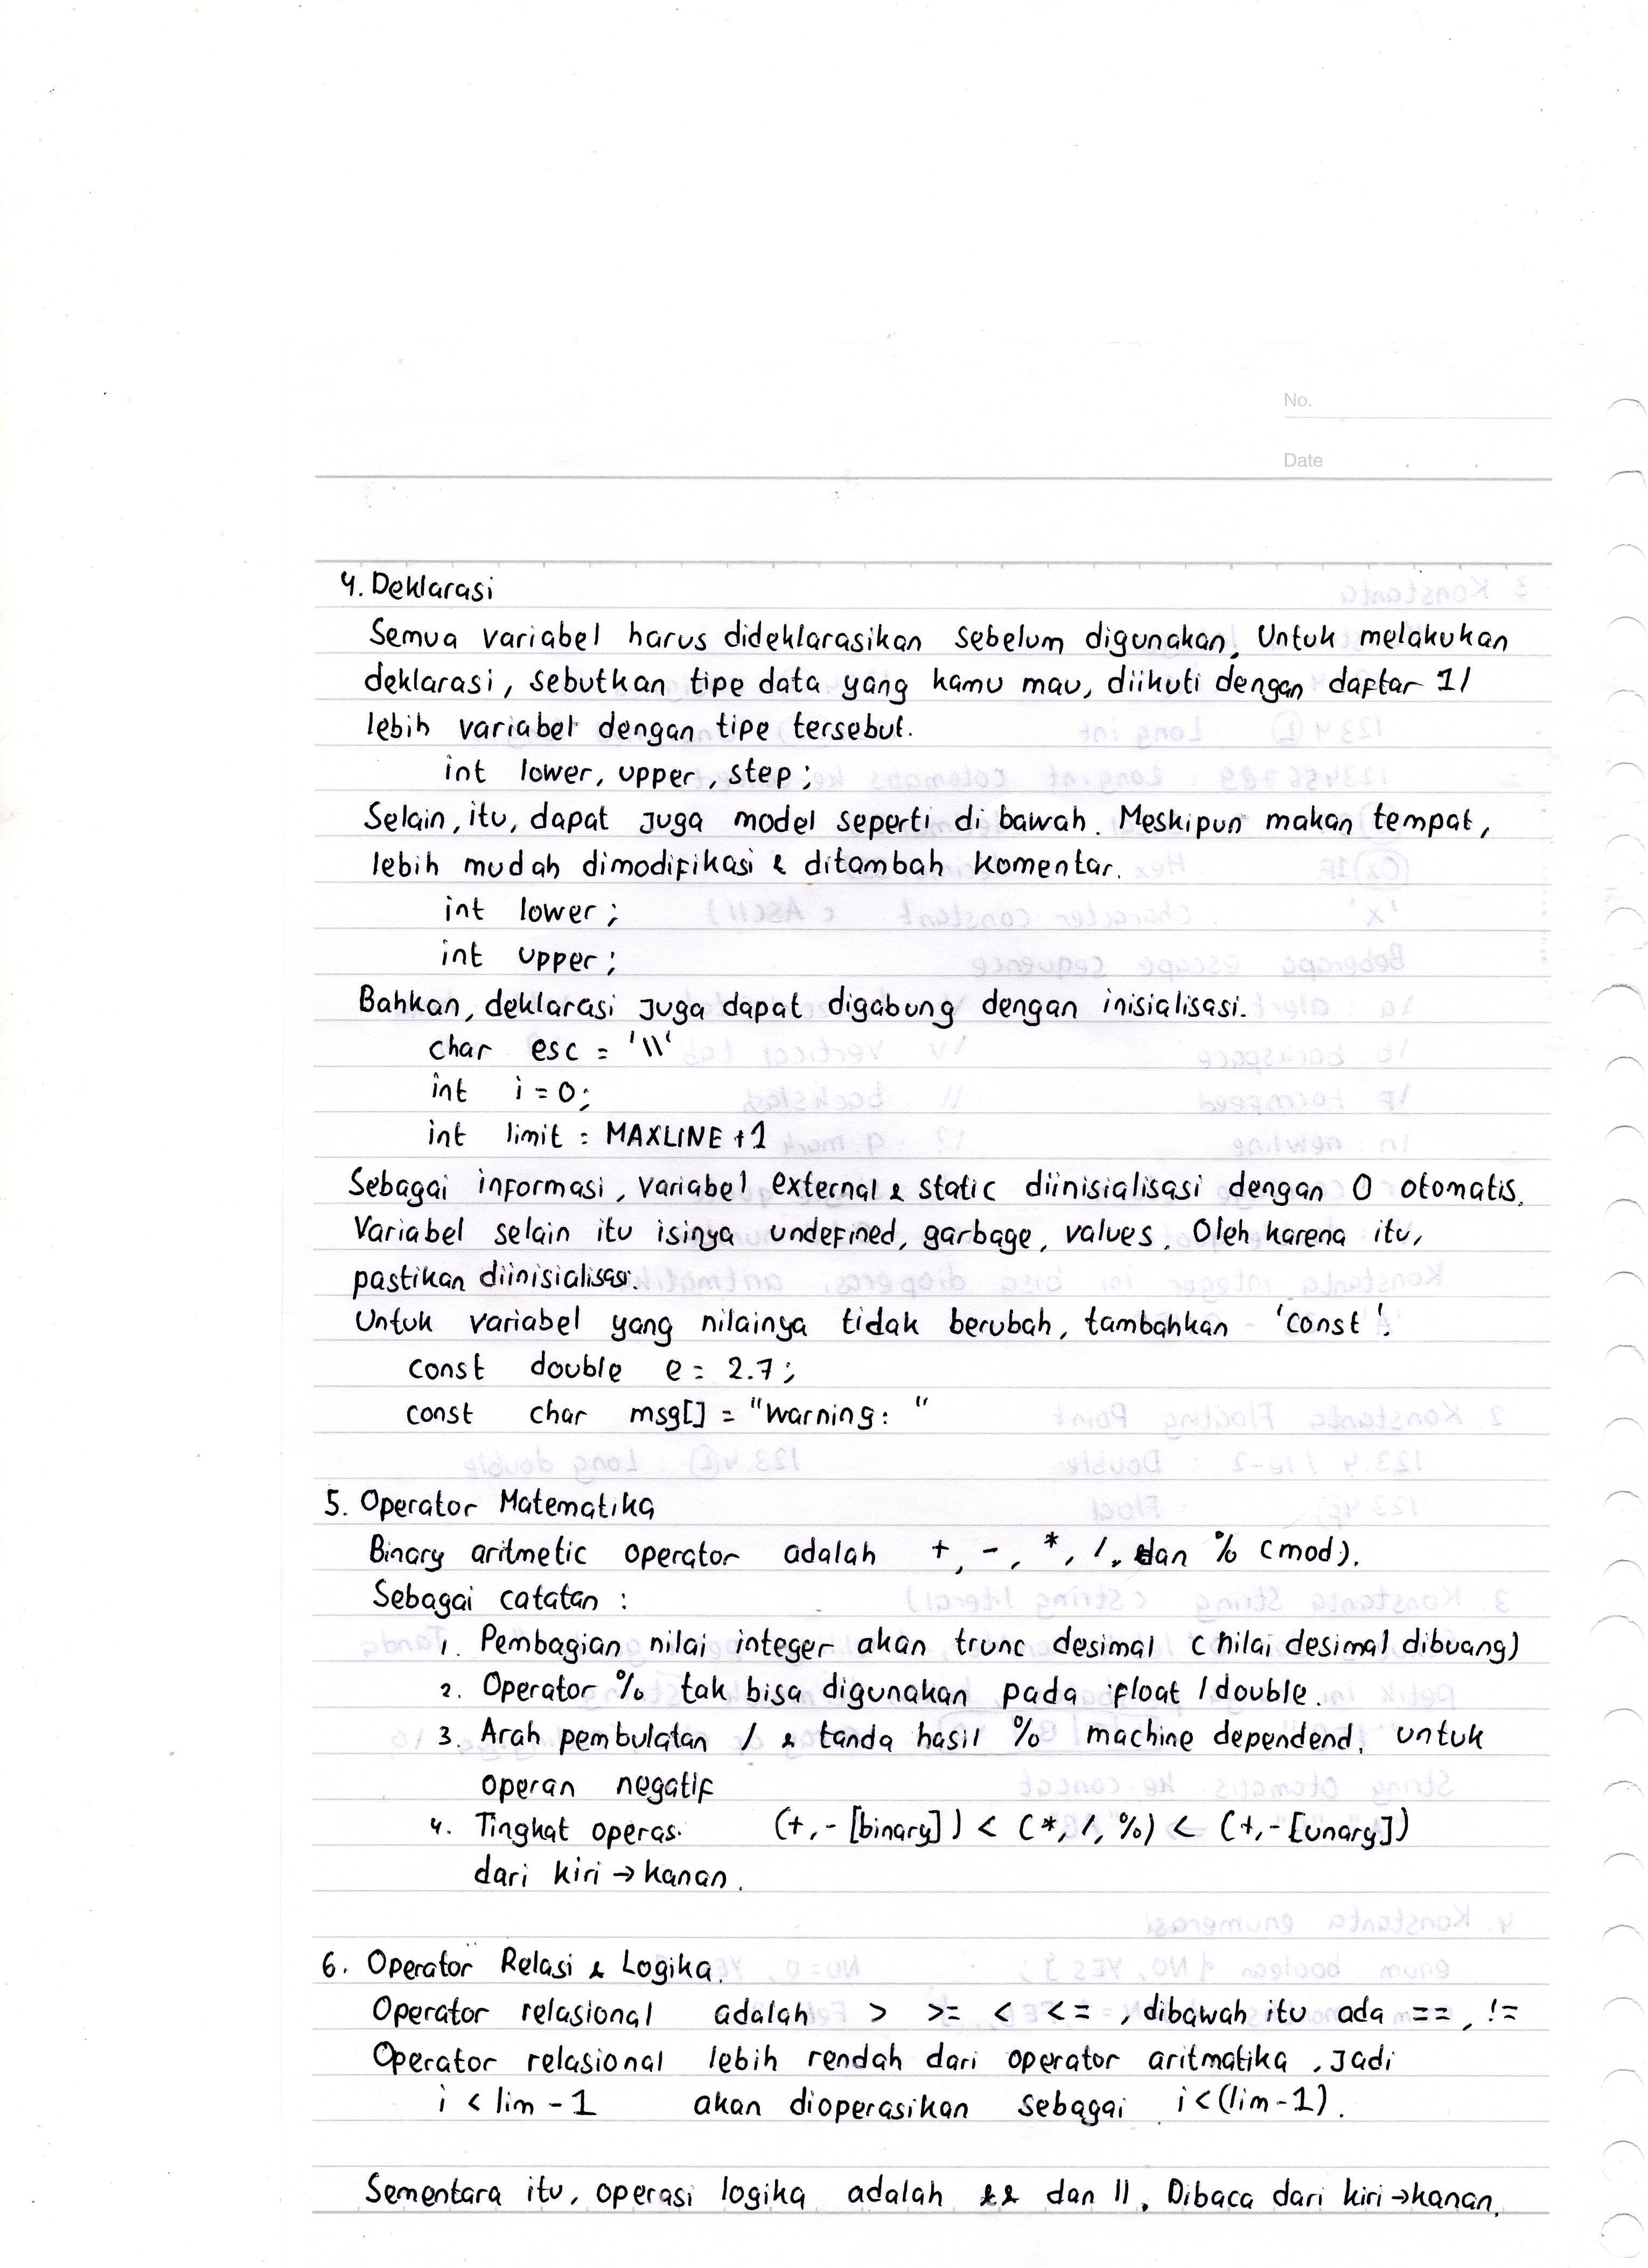 No.
Date
4. Deklarasi
Semua variabel harus dideklarasikan sebelum digunakan. Untuk melakukan
deklarasi, sebutkan tipe data yang kamu mau, diikuti dengan daftar 1/
lebih variabel dengan tipe tersebut.
int lower, upper, step;
Selain, itu, dapat juga model seperti di bawah. Meskipun makan tempat,
lebih mudah dimodifikasi & ditambah komentar.
int lower;
int upper;
Bahkan, deklarasi juga dapat digabung dengan inisialisasi.
char esc = '\\'
int i = 0;
int limit = MAXLINE +1
Sebagai informasi, variabel external & static diinisialisasi dengan 0 otomatis.
Variabel selain itu isinya undefined, garbage, values. Oleh karena itu,
pastikan diinisialisasi.
Untuk variabel yang nilainya tidak berubah, tambahkan 'const'.
const double e = 2.7;
const char msg[] = "Warning: "
5. Operator Matematika
Binary aritmetic operator adalah +, -, *, /, dan % (mod).
Sebagai catatan :
1. Pembagian nilai integer akan trunc desimal (nilai desimal dibuang)
2. Operator % tak bisa digunakan pada float / double.
3. Arah pembulatan / & tanda hasil % machine dependend. untuk
operan negatif
4. Tingkat operasi (+, - [binary]) < (*, /, %) < (+, - [unary])
dari kiri → kanan.
6. Operator Relasi & Logika.
Operator relasional adalah > >= < <= , dibawah itu ada ==, !=
Operator relasional lebih rendah dari operator aritmatika. Jadi
i < lim - 1 akan dioperasikan sebagai i < (lim - 1).
Sementara itu, operasi logika adalah && dan ||. Dibaca dari kiri → kanan.